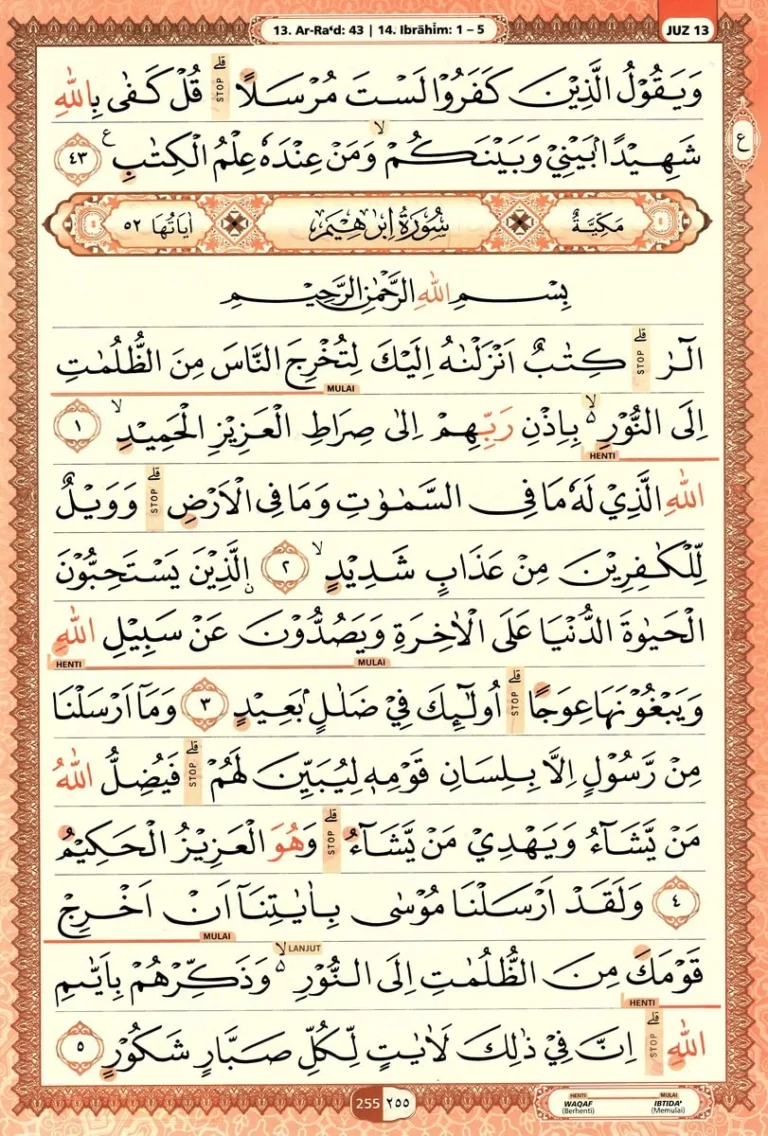 13. Ar-Raʿd: 43 | 14. Ibrāhīm: 1 – 5
JUZ 13
وَيَقُوْلُ الَّذِيْنَ كَفَرُوْا لَسْتَ مُرْسَلًا ۗ STOP قُلْ كَفٰى بِاللّٰهِ
شَهِيْدًاۢ بَيْنِيْ وَبَيْنَكُمْۙ وَمَنْ عِنْدَهٗ عِلْمُ الْكِتٰبِ ࣖ ٤٣
ع
مَكِّيَّةٌ سُوْرَةُ اِبْرٰهِيْمَ اٰيَاتُهَا ٥٢
بِسْمِ اللّٰهِ الرَّحْمٰنِ الرَّحِيْمِ
الۤرٰ ۗ STOP كِتٰبٌ اَنْزَلْنٰهُ اِلَيْكَ لِتُخْرِجَ النَّاسَ مِنَ الظُّلُمٰتِ
MULAI
اِلَى النُّوْرِ ەۙ بِاِذْنِ رَبِّهِمْ اِلٰى صِرَاطِ الْعَزِيْزِ الْحَمِيْدِۙ ١
HENTI
اللّٰهِ الَّذِيْ لَهٗ مَا فِى السَّمٰوٰتِ وَمَا فِى الْاَرْضِ ۗ STOP وَوَيْلٌ
لِّلْكٰفِرِيْنَ مِنْ عَذَابٍ شَدِيْدٍۙ ٢ ۨالَّذِيْنَ يَسْتَحِبُّوْنَ
الْحَيٰوةَ الدُّنْيَا عَلَى الْاٰخِرَةِ وَيَصُدُّوْنَ عَنْ سَبِيْلِ اللّٰهِ
MULAI HENTI
وَيَبْغُوْنَهَا عِوَجًا ۗ STOP اُولٰۤىِٕكَ فِيْ ضَلٰلٍۢ بَعِيْدٍ ٣ وَمَآ اَرْسَلْنَا
مِنْ رَّسُوْلٍ اِلَّا بِلِسَانِ قَوْمِهٖ لِيُبَيِّنَ لَهُمْ ۗ STOP فَيُضِلُّ اللّٰهُ
مَنْ يَّشَاۤءُ وَيَهْدِيْ مَنْ يَّشَاۤءُ ۗ STOP وَهُوَ الْعَزِيْزُ الْحَكِيْمُ
٤ وَلَقَدْ اَرْسَلْنَا مُوْسٰى بِاٰيٰتِنَآ اَنْ اَخْرِجْ
MULAI
قَوْمَكَ مِنَ الظُّلُمٰتِ اِلَى النُّوْرِ ەۙ LANJUT وَذَكِّرْهُمْ بِاَيّٰىمِ
HENTI
اللّٰهِ ۗ STOP اِنَّ فِيْ ذٰلِكَ لَاٰيٰتٍ لِّكُلِّ صَبَّارٍ شَكُوْرٍ ٥
255 ٢٥٥
HENTI MULAI
WAQAF IBTIDA'
(Berhenti) (Memulai)